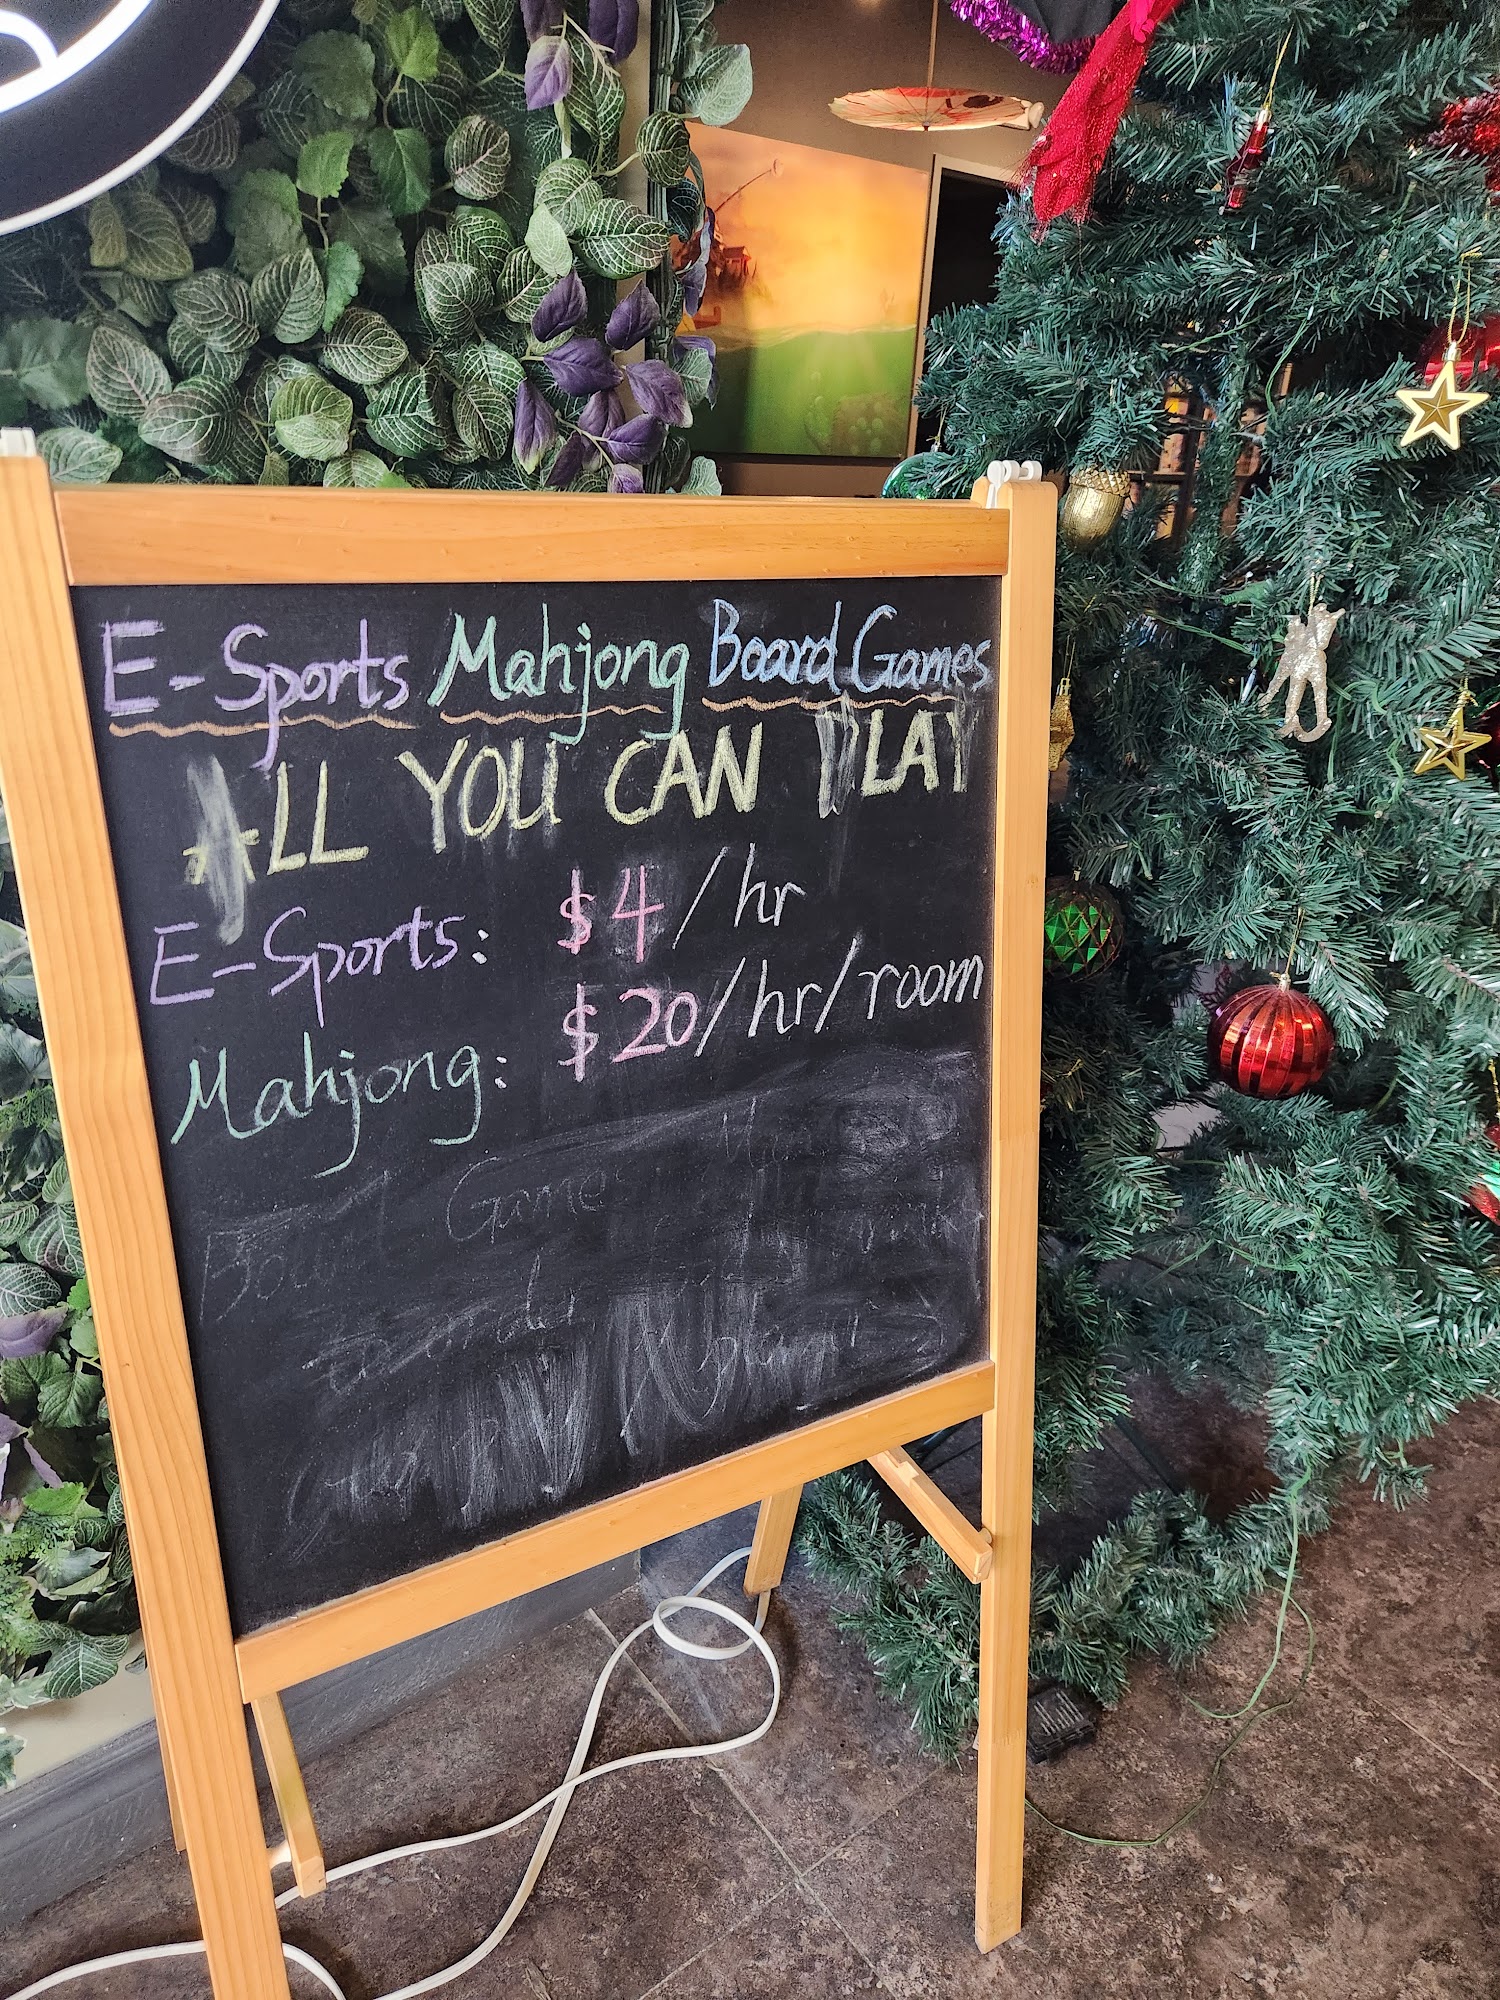 E-Sports Mahjong Board Games
ALL YOU CAN PLAY
E-Sports: $4/hr
Mahjong: $20/hr/room
Board Game